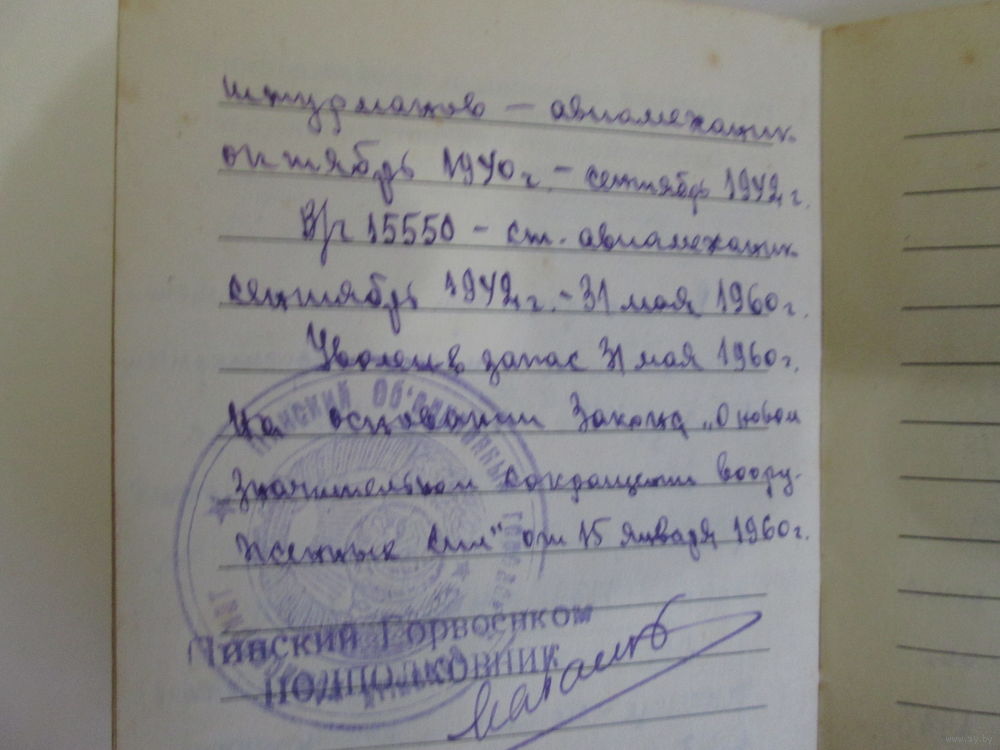 штурманов — авиамеханик
октябрь 1940 г. - сентябрь 1942 г.
В/ч 15550 - ст. авиамеханик
сентябрь 1942 г. - 31 мая 1960 г.
Уволен в запас 31 мая 1960 г.
На основании Закона „О новом
значительном сокращении воору-
женных сил" от 15 января 1960 г.
Пинский Горвоенком
подполковник
www.ay.by